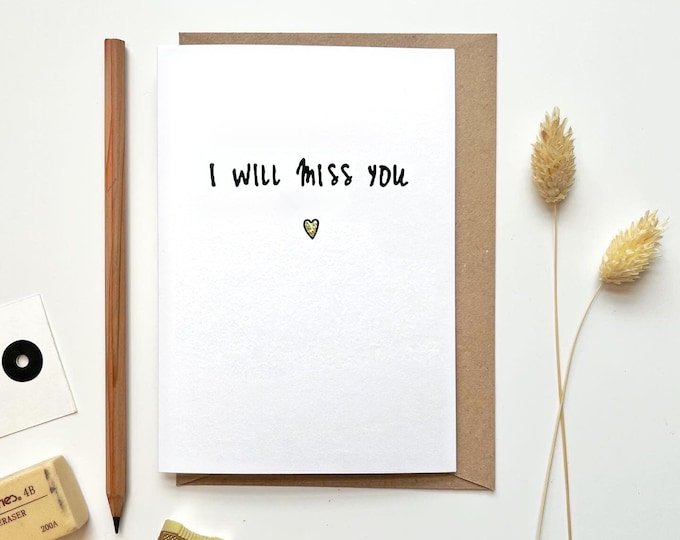 I WILL MISS YOU
4B
ERASER
200A